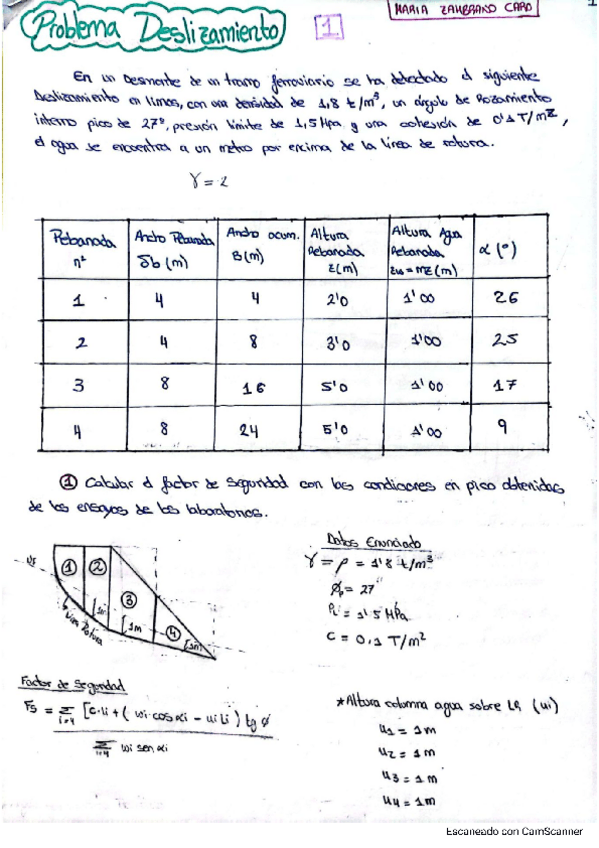 Problema Deslizamiento
1
MARIA ZAMBRANO CARO
En un Desmonte de un tramo ferroviario se ha detectado el siguiente
Deslizamiento en limos, con una densidad de 1,8 t/m³, un ángulo de Rozamiento
interno pico de 27º, presión límite de 1,5 Mpa y una cohesión de 0'1 T/m²,
el agua se encuentra a un metro por encima de la línea de rotura.
γ = 2
Rebanada nº | Ancho Rebanada δb (m) | Ancho acum. B (m) | Altura Rebanada z (m) | Altura Agua Rebanada zw = mz (m) | α (º)
1 | 4 | 4 | 2'0 | 1'00 | 26
2 | 4 | 8 | 3'0 | 1'00 | 25
3 | 8 | 16 | 5'0 | 1'00 | 17
4 | 8 | 24 | 5'0 | 1'00 | 9
① Calcular el factor de seguridad con las condiciones en pico obtenidas
de los ensayos de los laboratorios.
① ② ③ ④
1m
1m
Linea Rotura
Datos Enunciado
γ = ρ = 1'8 t/m³
= 27
= 1'5 MPa
C = 0,1 T/m²
Factor de Seguridad
Fs = Σ [c·li + (wi cos αi - ui li) tg φ
Σ wi sen αi
*Altura columna agua sobre LR (ui)
u1 = 1m
u2 = 1m
u3 = 1m
u4 = 1m
Escaneado con CamScanner